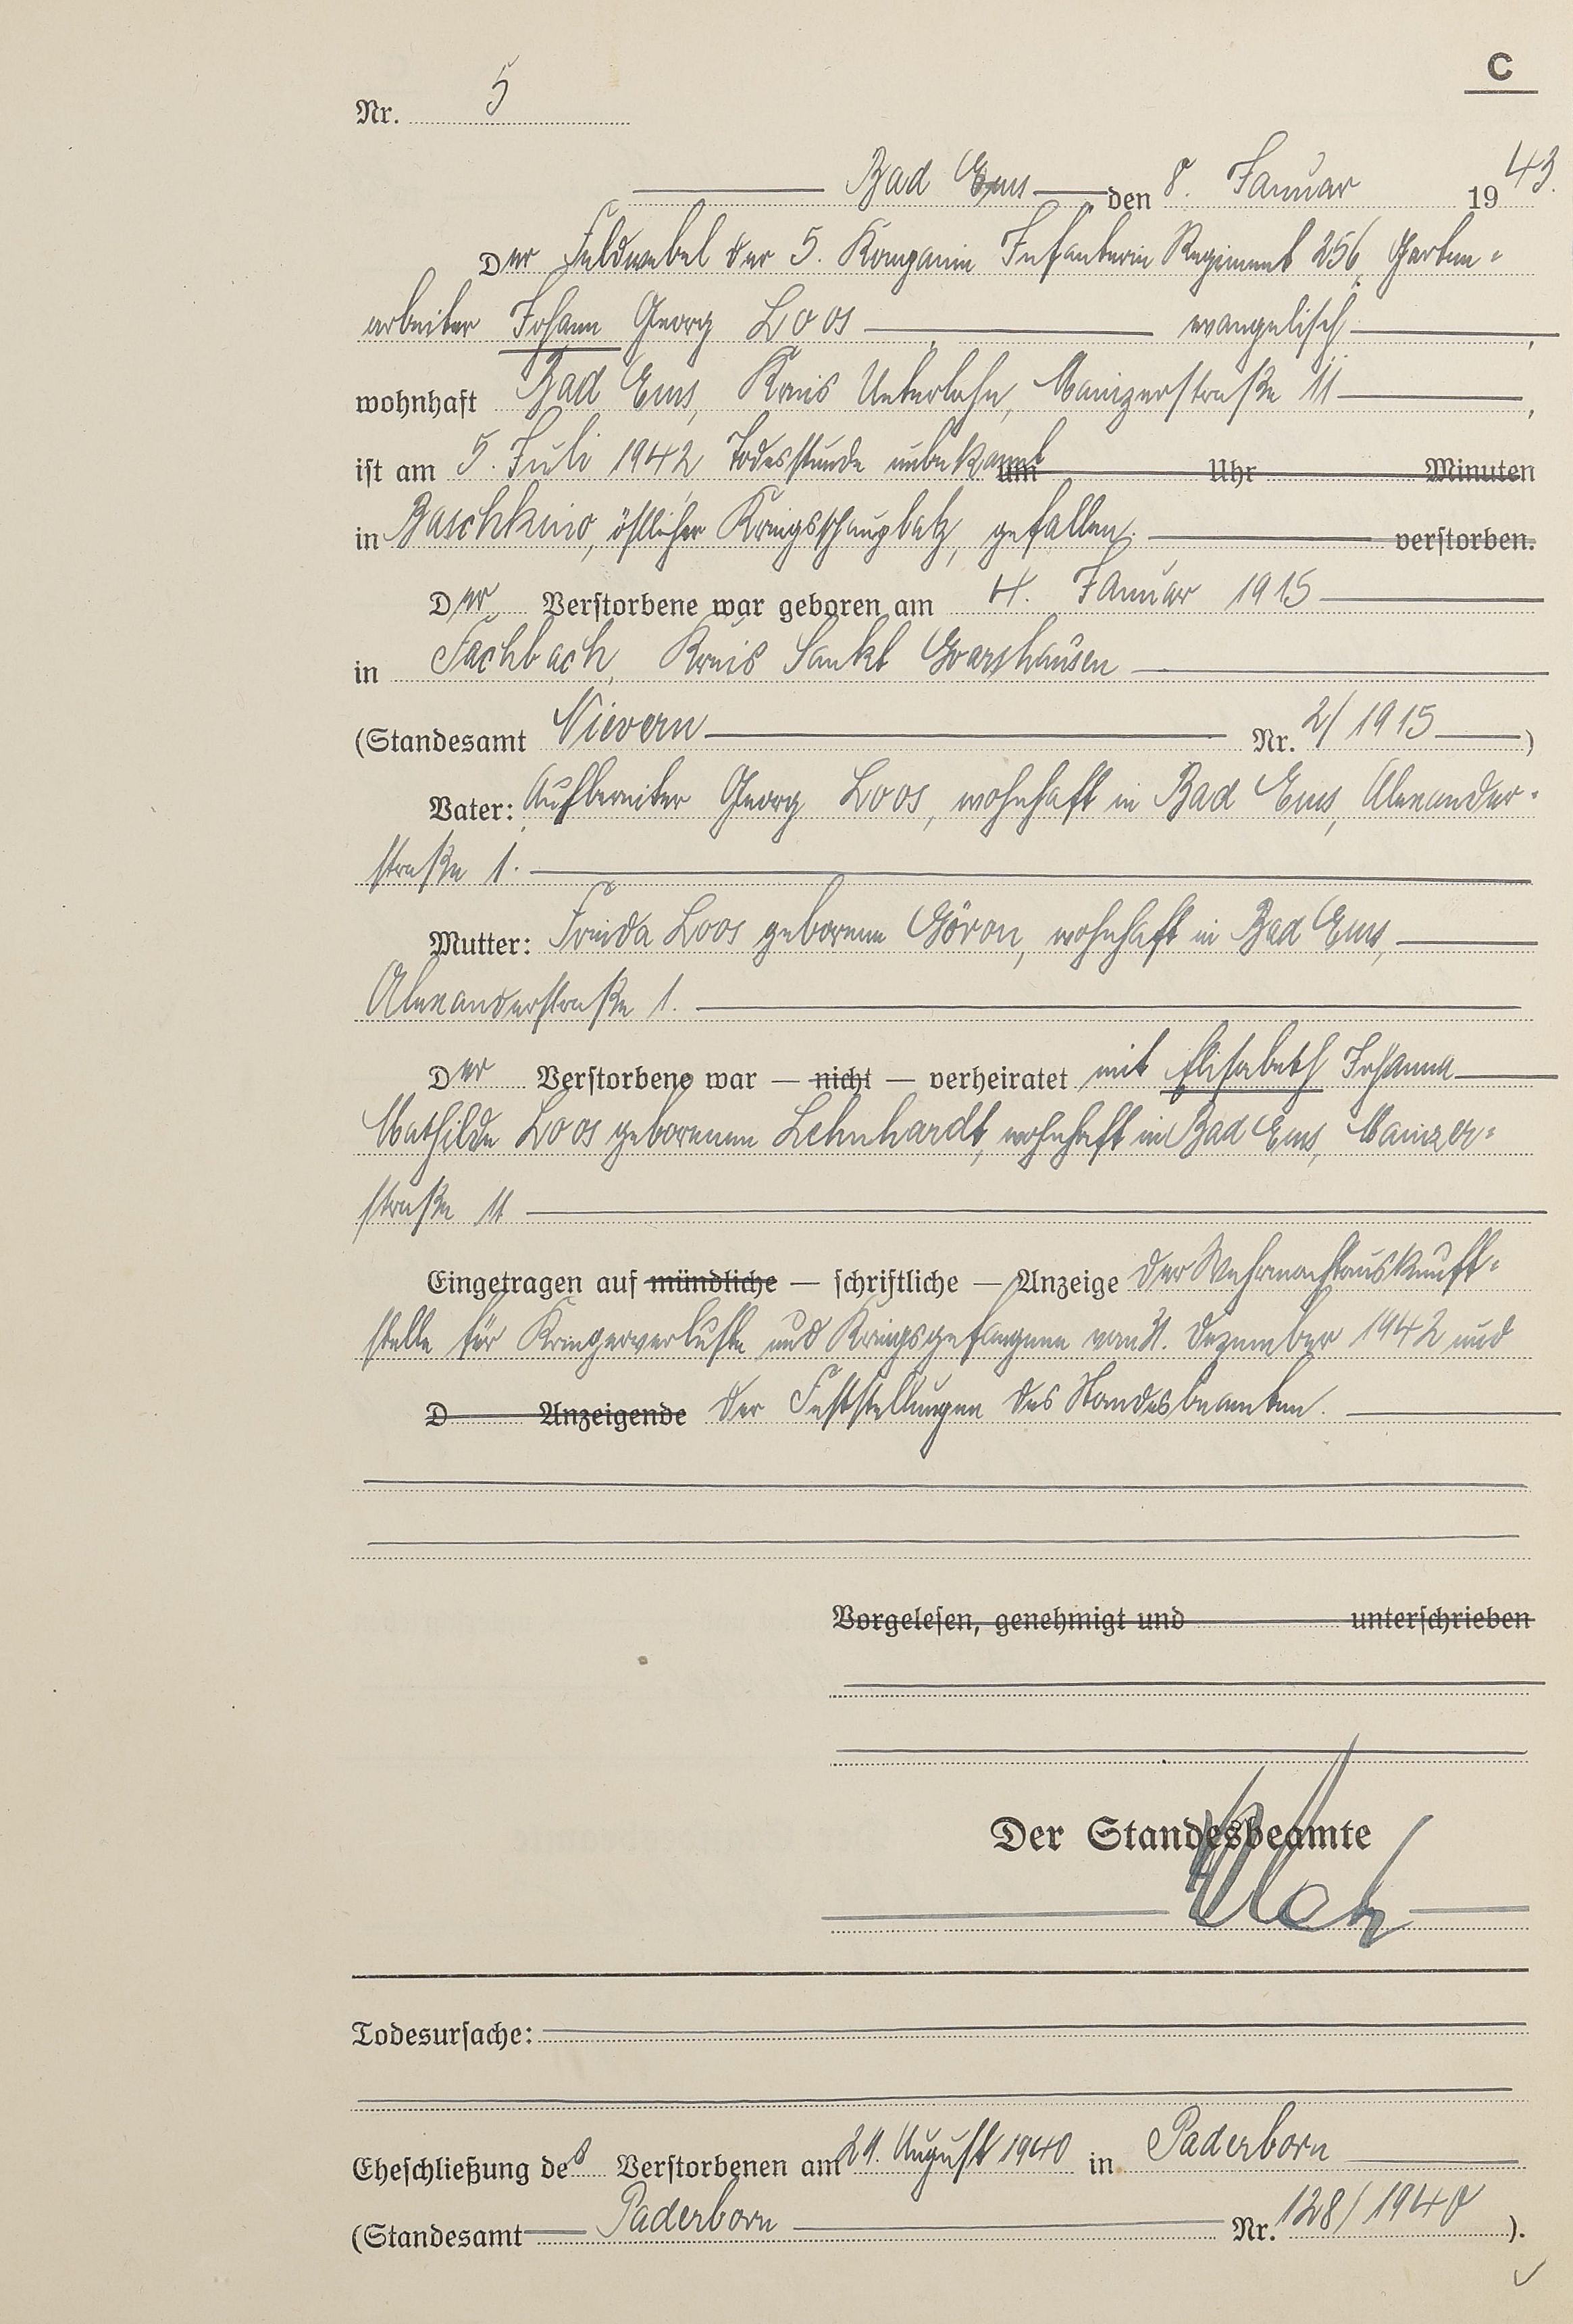 C
Nr. 5
Bad Ems den 8. Januar 1943.
Der Feldwebel der 5. Kompanie Infanterie Regiment 256, Garten-
arbeiter Johann Georg Loos evangelisch,
wohnhaft Bad Ems, Kreis Unterlahn, Mainzerstraße 11,
ist am 5. Juli 1942 Todesstunde unbekannt um Uhr Minuten
in Baschkino, östlicher Kriegsschauplatz, gefallen. verstorben.
Der Verstorbene war geboren am 4. Januar 1915
in Fachbach, Kreis Sankt Goarshausen
(Standesamt Nievern Nr. 2/1915)
Vater: Aufbereiter Georg Loos, wohnhaft in Bad Ems, Alexander-
straße 1.
Mutter: Frieda Loos geborene Göron, wohnhaft in Bad Ems,
Alexanderstraße 1.
Der Verstorbene war — nicht — verheiratet mit Elisabeth Johanna
Mathilde Loos geborenen Lehnhardt, wohnhaft in Bad Ems, Mainzer-
straße 11
Eingetragen auf mündliche — schriftliche — Anzeige der Wehrmachtauskunft-
stelle für Kriegerverluste und Kriegsgefangene vom 31. Dezember 1942 und
D Anzeigende der Feststellungen des Standesbeamten.
Vorgelesen, genehmigt und unterschrieben
Der Standesbeamte
Todesursache:
Eheschließung des Verstorbenen am 29. August 1940 in Paderborn
(Standesamt Paderborn Nr. 128/1940).